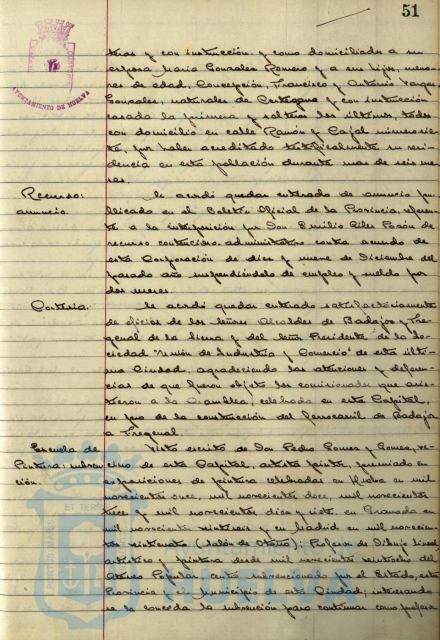 51
AYUNTAMIENTO DE HUELVA
teros y con instrucción, y como domiciliados a su
esposa María Gonzales Romero y a sus hijos, meno-
res de edad, Concepción, Francisco y Antonio Vargas
Gonzales, naturales de Cartagena y con instrucción
casada la primera y solteros los últimos, todos
con domicilio en calle Ramón y Cajal número sie-
te, por haber acreditado testificalmente su resi-
dencia en esta población durante mas de seis me-
ses.
Recurso: Se acordó quedar enterado de anuncio pu-
anuncio. blicado en el Boletín Oficial de la Provincia, referen-
te a la interposición por Don Emilio Giles Pasón de
recurso contencioso-administrativo contra acuerdo de
esta Corporación de diez y nueve de Diciembre del
pasado año suspendiéndole de empleo y sueldo por
dos meses.
Cortesía. Se acordó quedar enterado satisfactoriamente
de oficios de los señores Alcaldes de Badajoz y Fre-
genal de la Sierra y del señor Presidente de la So-
ciedad "Unión de Industria y Comercio" de esta últi-
ma Ciudad, agradeciendo las atenciones y deferen-
cias de que fueron objeto los comisionados que asis-
tieron a la Asamblea, celebrada en esta Capital,
en pro de la construcción del ferrocarril de Badajoz
a Fregenal.
Escuela de Visto escrito de Don Pedro Gomez y Gomez, ve-
Pintura: subven- cino de esta Capital, artista pintor, premiado en
ción. exposiciones de pintura celebradas en Huelva en mil
novecientos once, mil novecientos doce, mil novecientos
trece y mil novecientos diez y siete, en Granada en
mil novecientos veintiseis y en Madrid en mil novecien-
tos veintinueve (Salón de Otoño); Profesor de Dibujo lineal
artístico y pintura desde mil novecientos veintiocho del
Ateneo Popular, centro subvencionado por el Estado, esta
Provincia y el Municipio de esta Ciudad; interesando
se le conceda la subvención para continuar como profesor